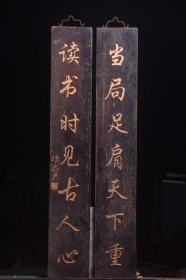 当局足肩天下重
读书时见古人心